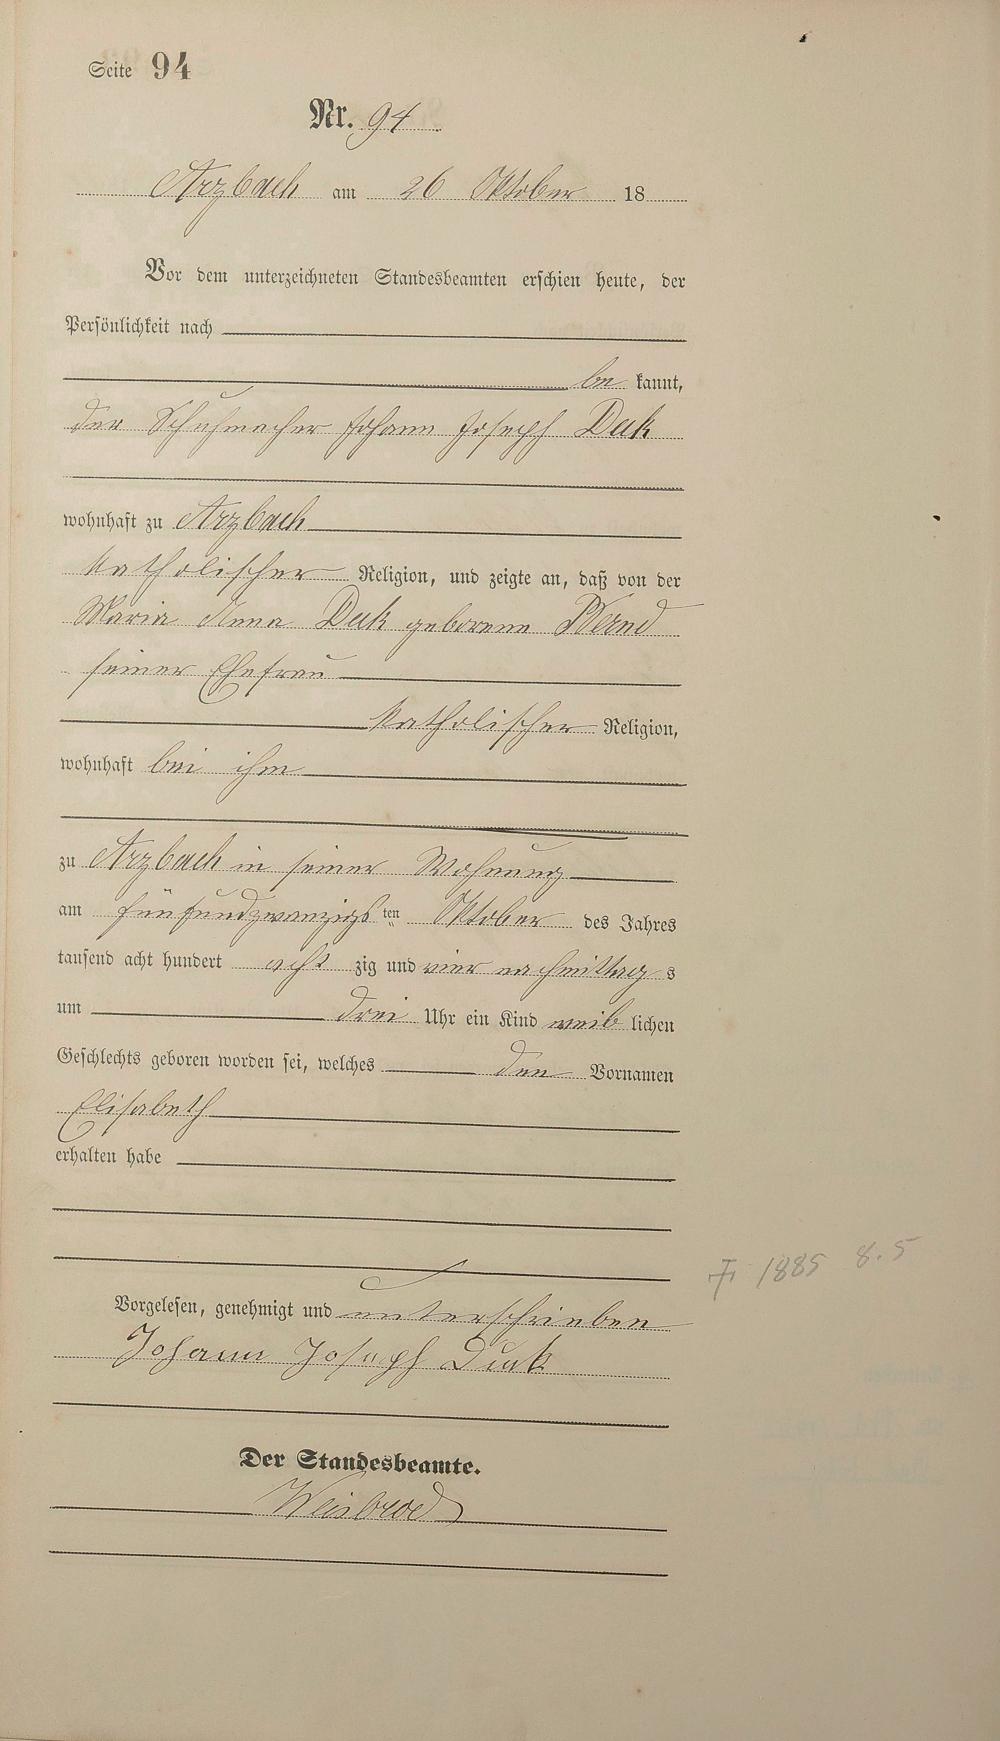 Seite 94
Nr. 94
Arzbach am 26 Oktober 18
Vor dem unterzeichneten Standesbeamten erschien heute, der
Persönlichkeit nach
be kannt,
der Schuhmacher Johann Joseph Duk
wohnhaft zu Arzbach
katholischer Religion, und zeigte an, daß von der
Maria Anna Duk geborene Bernd
seiner Ehefrau
katholischer Religion,
wohnhaft bei ihm
zu Arzbach in seiner Wohnung
am fünfundzwanzigs ten Oktober des Jahres
tausend acht hundert acht zig und vier nachmittag s
um drei Uhr ein Kind weib lichen
Geschlechts geboren worden sei, welches den Vornamen
Elisabeth
erhalten habe
1885 8.5
Vorgelesen, genehmigt und unterschrieben
Johann Joseph Duck
Der Standesbeamte.
Weisbrod